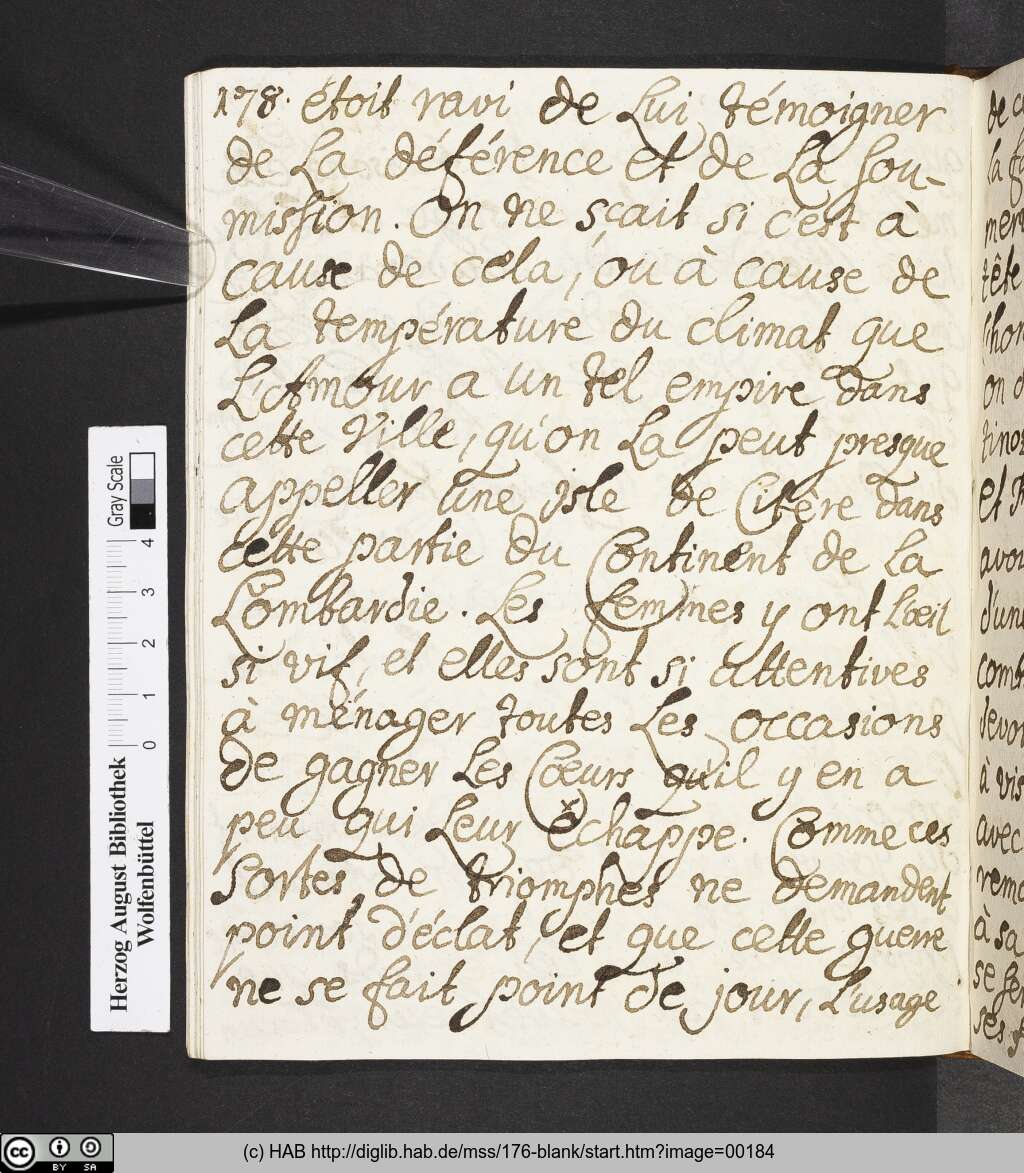 178. étoit ravi de Lui témoigner
de La déférence et de La sou-
mission. On ne sçait si c'est à
cause de cela, ou à cause de
La température du climat que
L'Amour a un tel empire dans
cette Ville, qu'on La peut presque
appeller une isle de Citère dans
cette partie du Continent de La
Lombardie. Les femmes y ont L'oeil
si vif, et elles sont si attentives
à ménager toutes Les occasions
de gagner Les Coeurs qu'il y en a
peu qui Leur échappe. Comme ces
sortes de triomphes ne demandent
point d'éclat, et que cette guerre
ne se fait point de jour, L'usage
de
la
tête
on
et
avoi
d'une
comb
devoi
à vis
avec
à sa
se
ses
Gray Scale
0 1 2 3 4
Herzog August Bibliothek
Wolfenbüttel
cc BY SA
(c) HAB http://diglib.hab.de/mss/176-blank/start.htm?image=00184